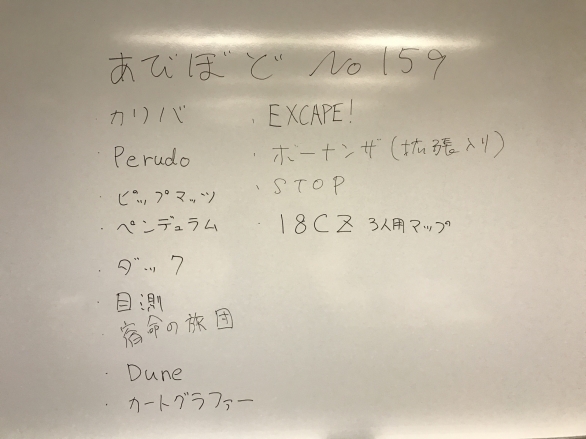 あびぼど No 159
・カリバ
・Perudo
・ピップマッツ
・ペンデュラム
・ダック
・目測
・宿命の旅団
・Dune
・カートグラファー
・EXCAPE!
・ボーナンザ(拡張入り)
・STOP
・18CZ 3人用マップ